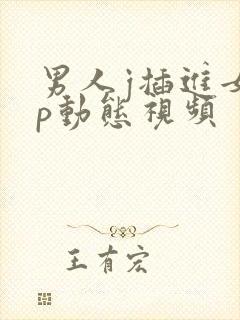 男人j插进女
p動態視頻
王有宏